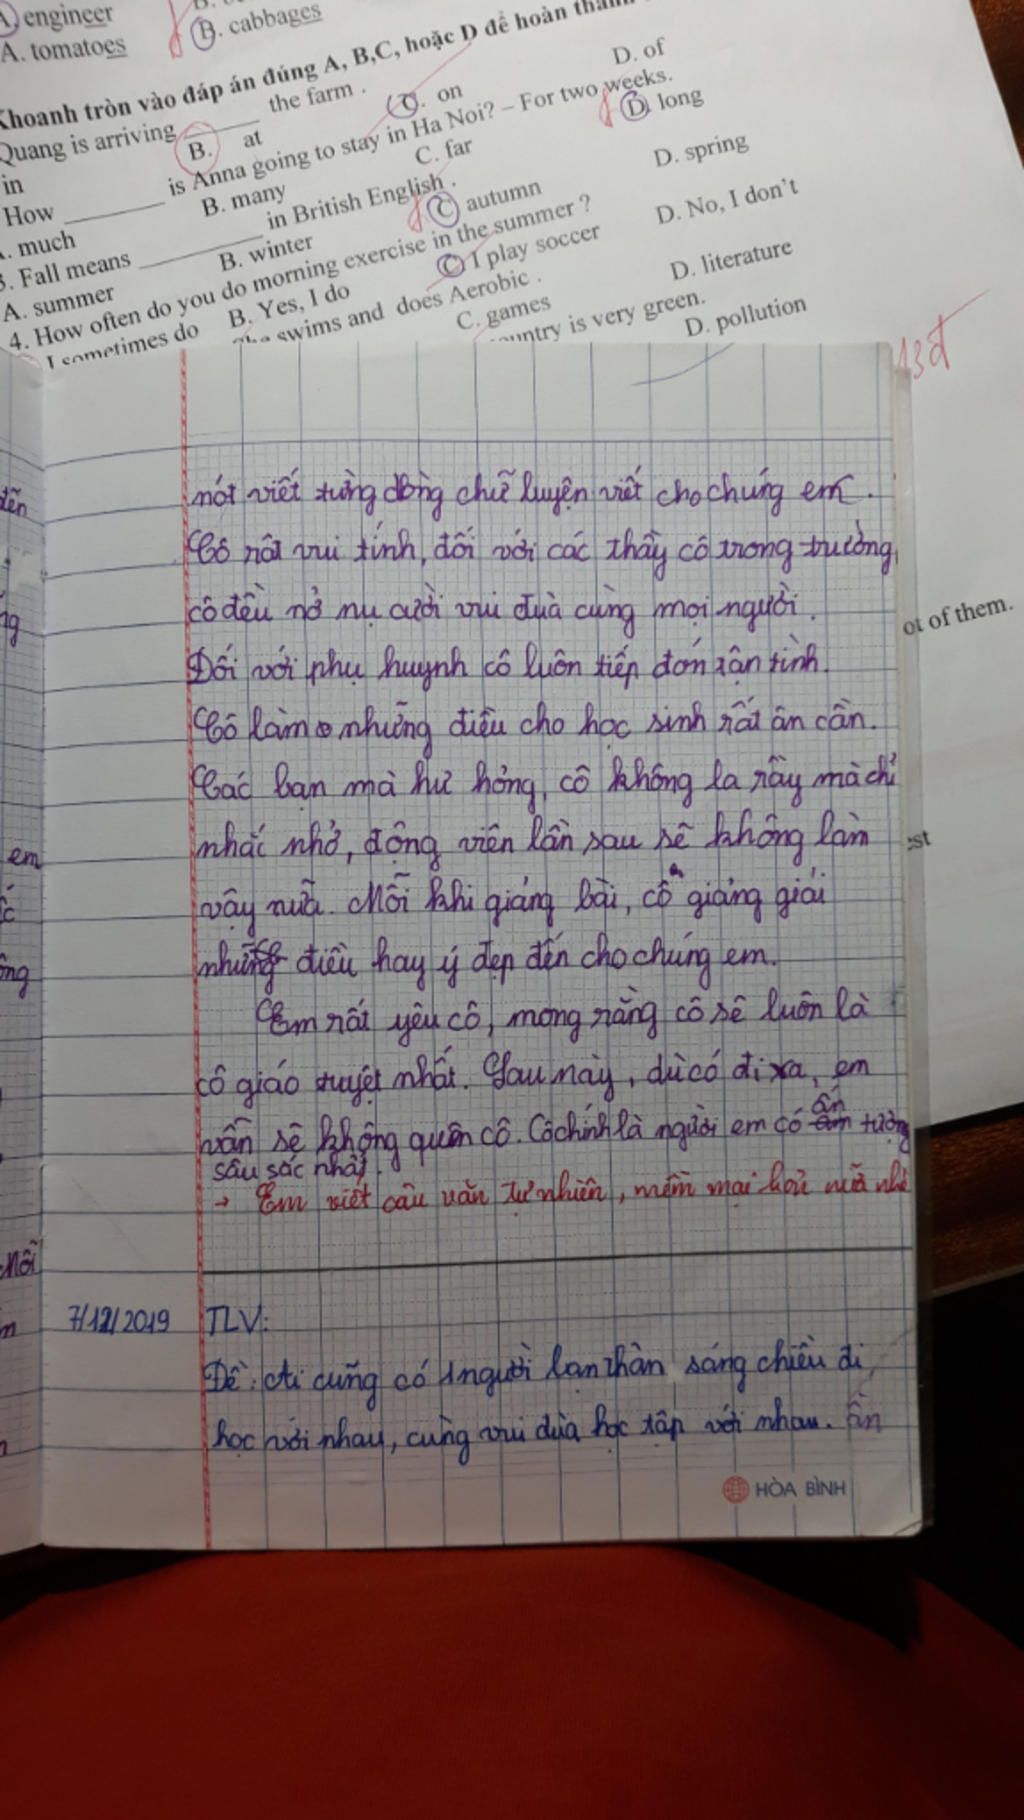 A. engineer
A. tomatoes B. cabbages
Khoanh tròn vào đáp án đúng A, B,C, hoặc D để hoàn thành
Quang is arriving ______ the farm .
in B. at C. on D. of
How ______ is Anna going to stay in Ha Noi? – For two weeks.
. much B. many C. far D. long
3. Fall means ______ in British English .
A. summer B. winter C. autumn D. spring
4. How often do you do morning exercise in the summer ?
I sometimes do B. Yes, I do C. I play soccer D. No, I don't
swims and does Aerobic .
C. games D. literature
country is very green.
D. pollution
ot of them.
est
nót viết từng dòng chữ luyện viết cho chúng em.
Cô rất vui tính, đối với các thầy cô trong trường,
cô đều nở nụ cười vui đùa cùng mọi người.
Đối với phụ huynh cô luôn tiếp đón tận tình.
Cô làm những điều cho học sinh rất ân cần.
Các bạn mà hư hỏng, cô không la rầy mà chỉ
nhắc nhở, động viên lần sau sẽ không làm
vậy nữa. Mỗi khi giảng bài, cô giảng giải
những điều hay ý đẹp đến cho chúng em.
Em rất yêu cô, mong rằng cô sẽ luôn là
cô giáo tuyệt nhất. Sau này, dù có đi xa, em
vẫn sẽ không quên cô. Cô chính là người em có ấn tượng
sâu sắc nhất.
→ Em viết câu văn tự nhiên, mềm mại hơn nữa nhé
7/12/2019 TLV:
Đề: Ai cũng có 1 người bạn thân sáng chiều đi
học với nhau, cùng vui đùa học tập với nhau. Ấn
HÒA BÌNH